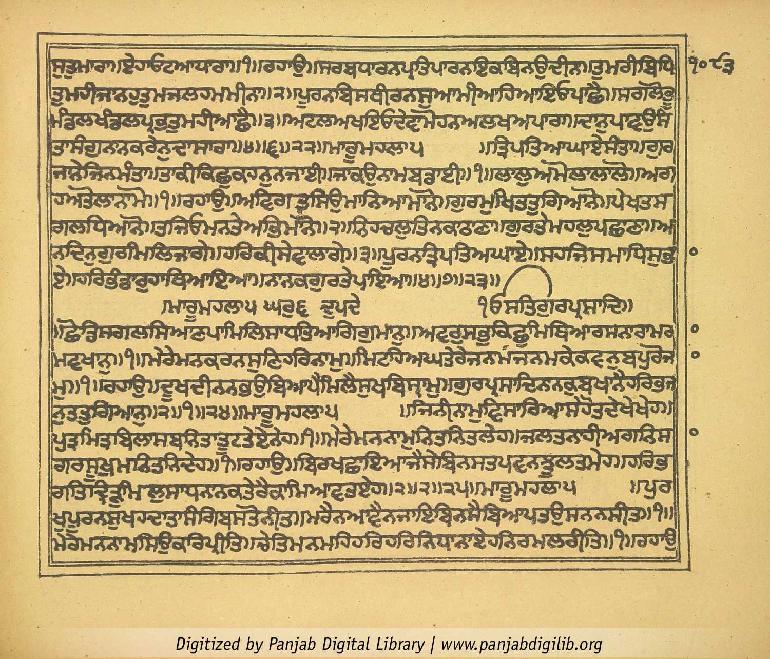 ਸਤੁਮਾਰਾ॥ਏਹਓਟਆਧਾਰਾ॥੧॥ਰਹਾਉ॥ਸਰਬਧਾਰਨਪ੍ਰਤਿਪਾਰਨਇਕਬਿਨਉਦੀਨਾ॥ਤੁਮਰੀਬਿਧਿ ੧੦੮੩
ਤੁਮਹੀਜਾਨਹੁਤੁਮਜਲਹਮਮੀਨਾ॥੨॥ਪੂਰਨਬਿਸਥੀਰਨਸੁਆਮੀਆਹਿਆਇਓਪਾਛੈ॥ਸਗਲੋਭੂ
ਮੰਡਲਖੰਡਲਪ੍ਰਭਤੁਮਹੀਆਛੈ॥੩॥ਅਟਲਅਖਇਓਦੇਵਾਮੋਹਨਅਲਖਅਪਾਰਾ॥ਦਾਨੁਪਾਵਉਸੰ
ਤਾਸੰਗੁਨਾਨਕਰੇਨੁਦਾਸਾਰਾ॥੪॥੬॥੨੨॥ਮਾਰੂਮਹਲਾ੫ ॥ਤ੍ਰਿਪਤਿਆਘਾਏਸੰਤਾ॥ਗੁਰ
ਜਾਨੇਜਿਨਮੰਤਾ॥ਤਾਕੀਕਿਛੁਕਹਨੁਨਜਾਈ॥ਜਾਕਉਨਾਮਬਡਾਈ॥੧॥ਲਾਲੁਅਮੋਲਾਲਾਲੋ॥ਅਗ
ਹਅਤੋਲਾਨਾਮੋ॥੧॥ਰਹਾਉ॥ਅਵਿਗਤਸਿਉਮਾਨਿਆਮਾਨੋ॥ਗੁਰਮੁਖਿਤਤੁਗਿਆਨੋ॥ਪੇਖਤਸ
ਗਲਧਿਆਨੋ॥ਤਜਿਓਮਨਤੇਅਭਿਮਾਨੋ॥੨॥ਨਿਹਚਲੁਤਿਨਕਾਠਾਣਾ॥ਗੁਰਤੇਮਹਲੁਪਛਾਣਾ॥ਅ
ਨਦਿਨੁਗੁਰਮਿਲਿਜਾਗੇ॥ਹਰਿਕੀਸੇਵਾਲਾਗੇ॥੩॥ਪੂਰਨਤ੍ਰਿਪਤਿਅਘਾਏ॥ਸਹਜਿਸਮਾਧਿਸੁਭਾ
ਏ॥ਹਰਿਭੰਡਾਰੁਹਾਥਿਆਇਆ॥ਨਾਨਕਗੁਰਤੇਪਾਇਆ॥੪॥੭॥੨੩॥
ਮਾਰੂਮਹਲਾ੫ ਘਰੁ੬ ਦੁਪਦੇ ੴਸਤਿਗੁਰਪ੍ਰਸਾਦਿ॥
॥ਛੋਡਿਸਗਲਸਿਆਣਪਾਮਿਲਿਸਾਧਤਿਆਗਿਗੁਮਾਨੁ॥ਅਵਰੁਸਭੁਕਿਛੁਮਿਥਿਆਰਸਨਾਰਾਮਰਾ
ਮਵਖਾਨੁ॥੧॥ਮੇਰੇਮਨਕਰਨਸੁਣਿਹਰਿਨਾਮੁ॥ਮਿਟਹਿਅਘਤੇਰੇਜਨਮਜਨਮਕੇਕਵਨੁਬਪੁਰੋਜਾ
ਮੁ॥੧॥ਰਹਾਉ॥ਦੂਖਦੀਨਨਭਉਬਿਆਪੈਮਿਲੈਸੁਖਬਿਸ੍ਰਾਮੁ॥ਗੁਰਪ੍ਰਸਾਦਿਨਾਨਕੁਬਖਾਨੈਹਰਿਭਜ
ਨੁਤਤੁਗਿਆਨੁ॥੨॥੧॥੨੪॥ਮਾਰੂਮਹਲਾ੫ ॥ਜਿਨੀਨਾਮੁਵਿਸਾਰਿਆਸੇਹੋਤਦੇਖੇਖੇਹ॥
ਪੁਤ੍ਰਮਿਤ੍ਰਬਿਲਾਸਬਨਿਤਾਤੂਟਤੇਏਨੇਹ॥੧॥ਮੇਰੇਮਨਨਾਮੁਨਿਤਨਿਤਲੇਹ॥ਜਲਤਨਾਹੀਅਗਨਿਸਾ
ਗਰਸੂਖੁਮਨਿਤਨਿਦੇਹ॥੧॥ਰਹਾਉ॥ਬਿਰਖਛਾਇਆਜੈਸੇਬਿਨਸਤਪਵਨਝੂਲਤਮੇਹ॥ਹਰਿਭ
ਗਤਿਦ੍ਰਿੜੁਮਿਲੁਸਾਧਨਾਨਕਤੇਰੈਕਾਮਿਆਵਤਏਹ॥੨॥੨॥੨੫॥ਮਾਰੂਮਹਲਾ੫ ॥ਪੁਰ
ਖੁਪੂਰਨਸੁਖਹਦਾਤਾਸੰਗਿਬਸਤੋਨੀਤ॥ਮਰੈਨਆਵੈਨਜਾਇਬਿਨਸੈਬਿਆਪਤਉਸਨਨਸੀਤ॥੧॥
ਮੇਰੇਮਨਨਾਮਸਿਉਕਰਿਪ੍ਰੀਤਿ॥ਚੇਤਿਮਨਮਹਿਹਰਿਹਰਿਨਿਧਾਨਾਏਹਨਿਰਮਲਰੀਤਿ॥੧॥ਰਹਾਉ
Digitized by Panjab Digital Library | www.panjabdigilib.org